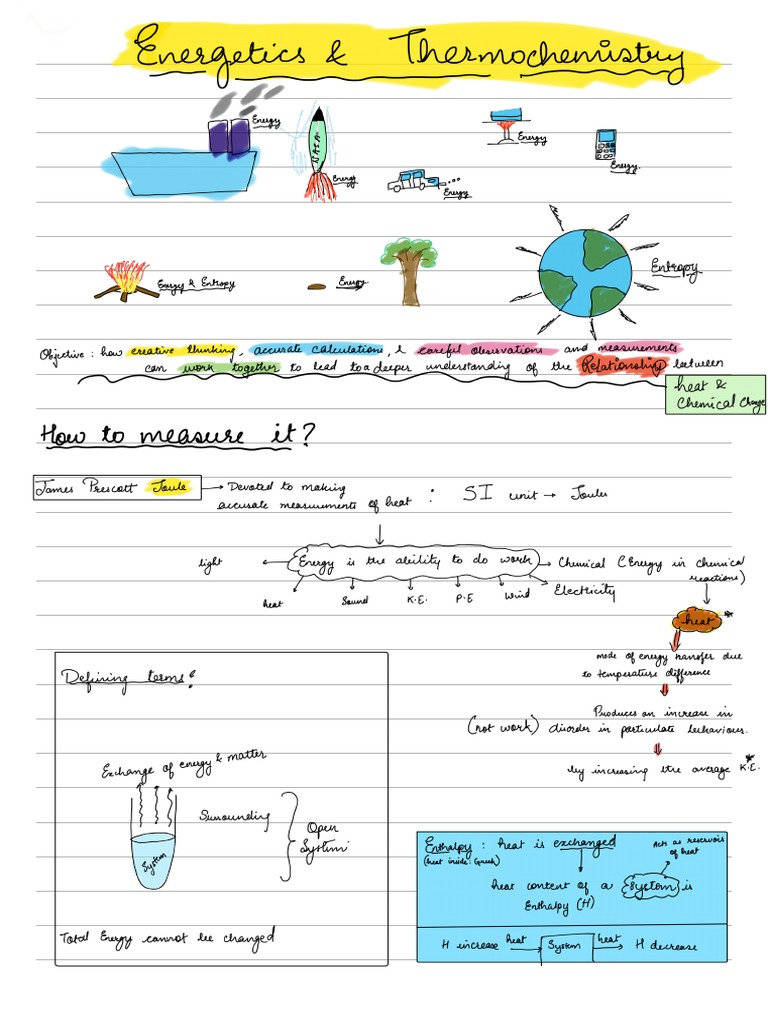 Energetics & Thermochemistry
Energy
NASA
Energy
Energy
Energy
Energy.
Energy & Entropy
Energy
Entropy
Objective : how creative thinking, accurate calculations, & careful observations and measurements
can work together to lead to a deeper understanding of the Relationship between
heat &
chemical change
How to measure it?
James Prescott Joule → Devoted to making
accurate measurements of heat : SI unit → Joules
light ← Energy is the ability to do work → Chemical (Energy in chemical
reactions)
heat Sound K.E. P.E Wind Electricity
heat *
mode of energy transfer due
to temperature difference
Produces an increase in
(not work) disorder in particulate behaviours.
by increasing the average K.E.*
Defining terms:
Exchange of energy & matter
Surrounding
System
Open
System
Total Energy cannot be changed
Enthalpy : heat is exchanged
(heat inside: Greek)
Acts as reservoirs
of heat
heat content of a System is
Enthalpy (H)
H increase heat → System heat → H decrease